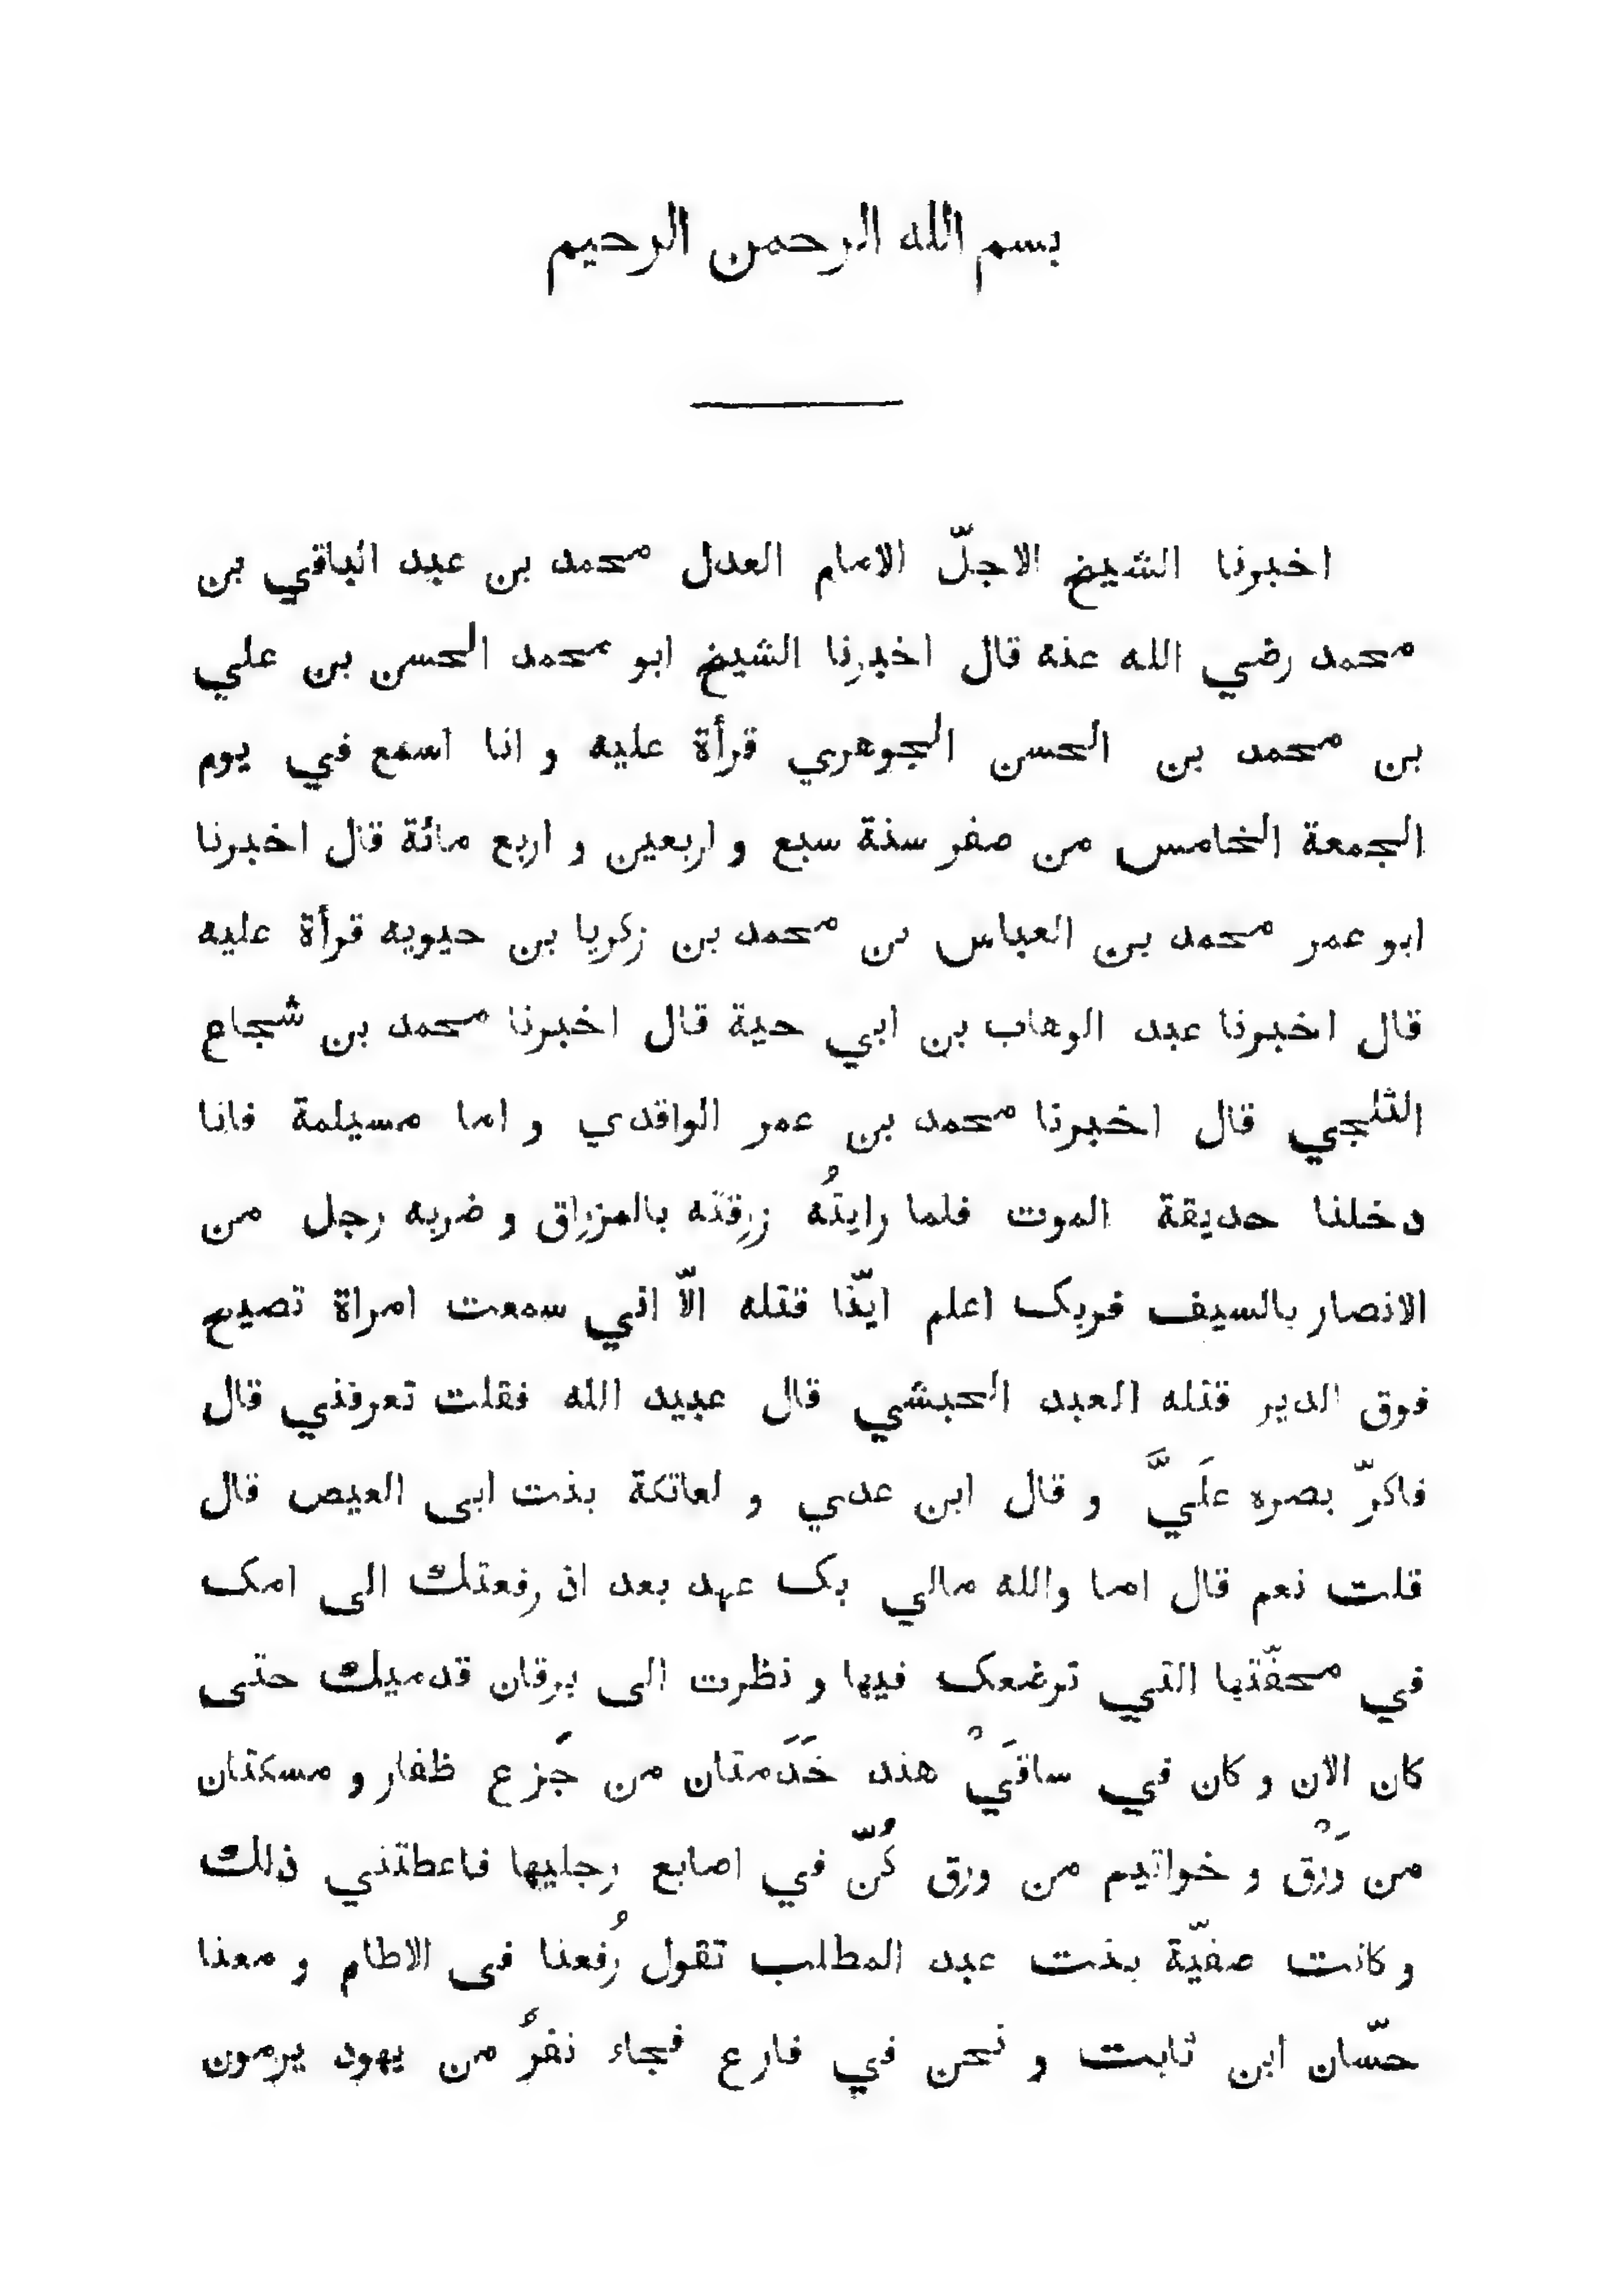 بسم الله الرحمن الرحيم
اخبرنا الشيخ الاجلّ الامام العدل محمد بن عبد الباقي بن
محمد رضي الله عنه قال اخبرنا الشيخ ابو محمد الحسن بن علي
بن محمد بن الحسن الجوهري قرأة عليه و انا اسمع في يوم
الجمعة الخامس من صفر سنة سبع و اربعين و اربع مائة قال اخبرنا
ابو عمر محمد بن العباس بن محمد بن زكريا بن حيويه قرأة عليه
قال اخبرنا عبد الوهاب بن ابي حية قال اخبرنا محمد بن شجاع
الثلجي قال اخبرنا محمد بن عمر الواقدي و اما مسيلمة فانا
دخلنا حديقة الموت فلما رايتُه زرقته بالمزراق و ضربه رجل من
الانصار بالسيف فربك اعلم ايّنا قتله الّا اني سمعت امراة تصيح
فوق الدير قتله العبد الحبشي قال عبيد الله فقلت تعرفني قال
فاكرّ بصره علَيَّ و قال ابن عدي و لعاتكة بنت ابى العيص قال
قلت نعم قال اما والله مالي بك عهد بعد اذ رفعتك الى امك
في محفّتها التي ترضعك فيها و نظرت الى برقان قدميك حتى
كان الان و كان في ساقَيْ هند خَدَمتان من جَزع ظفار و مسكتان
من وَرْق و خواتيم من ورق كُنّ في اصابع رجليها فاعطتني ذلك
و كانت صفيّة بنت عبد المطلب تقول رُفعنا فى الاطام و معنا
حسّان ابن ثابت و نحن في فارع فجاء نفرٌ من يهود يرمون